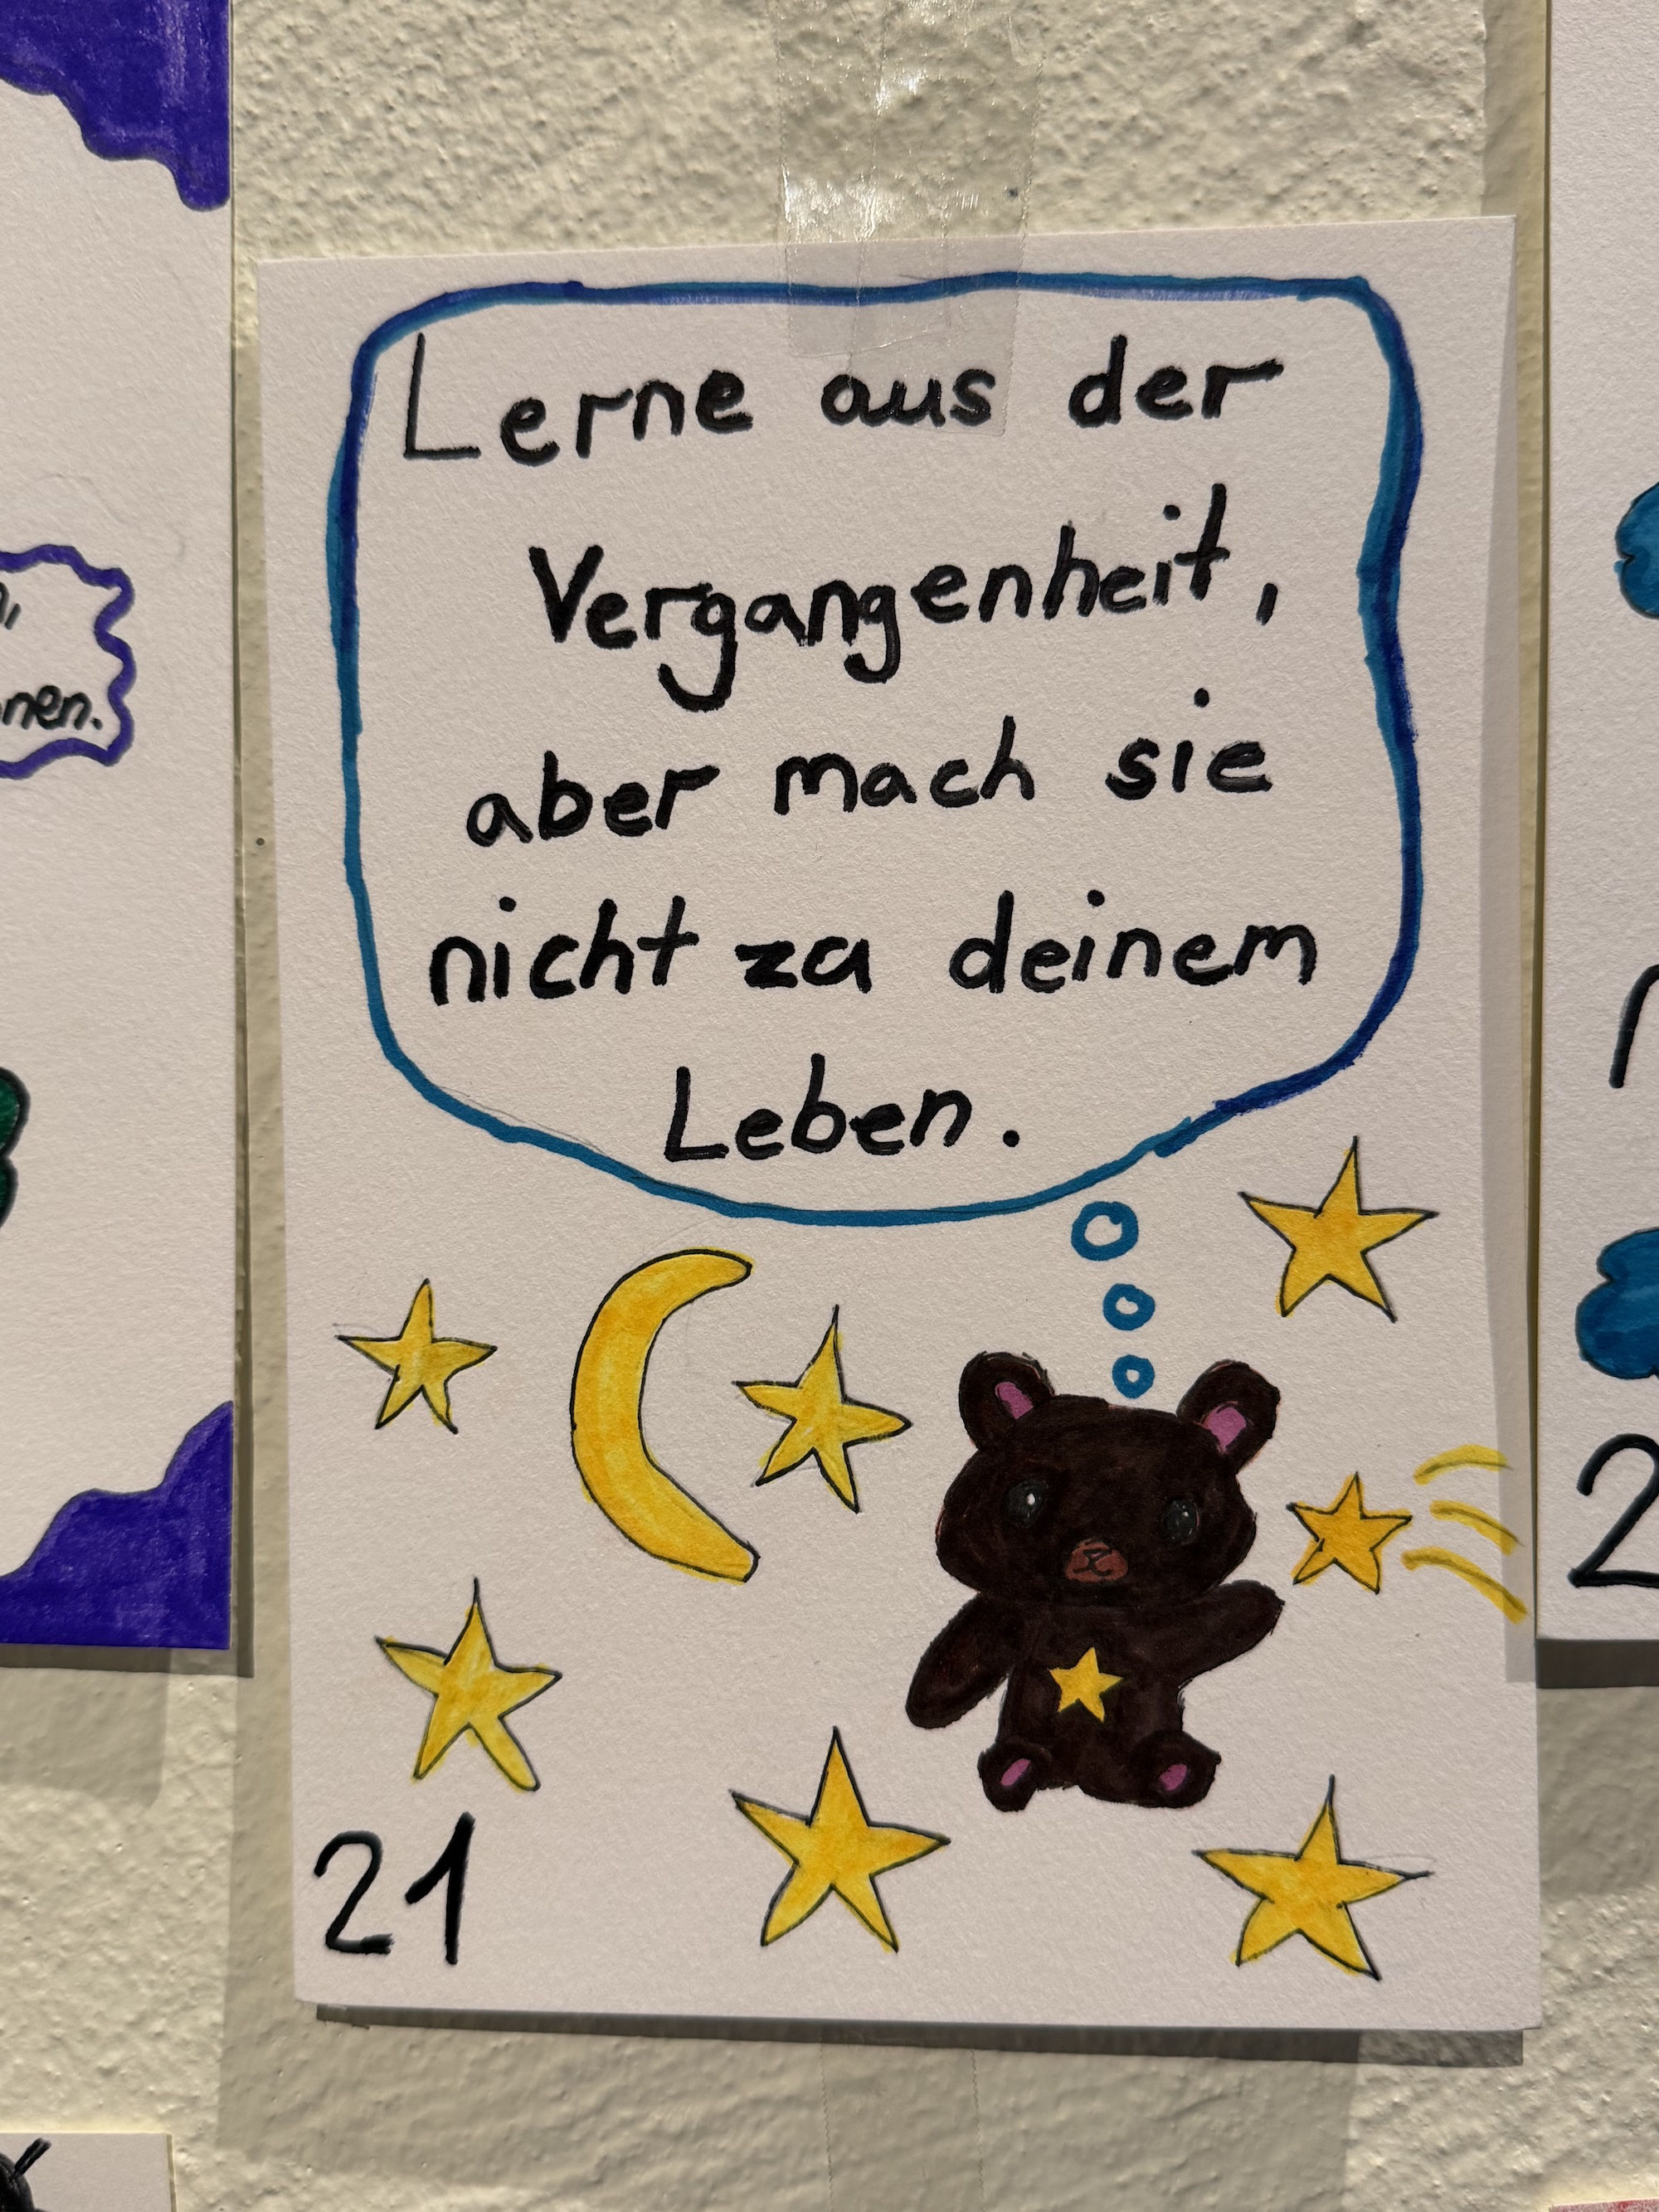 Lerne aus der
Vergangenheit,
aber mach sie
nicht za deinem
Leben.
21
nen.
2